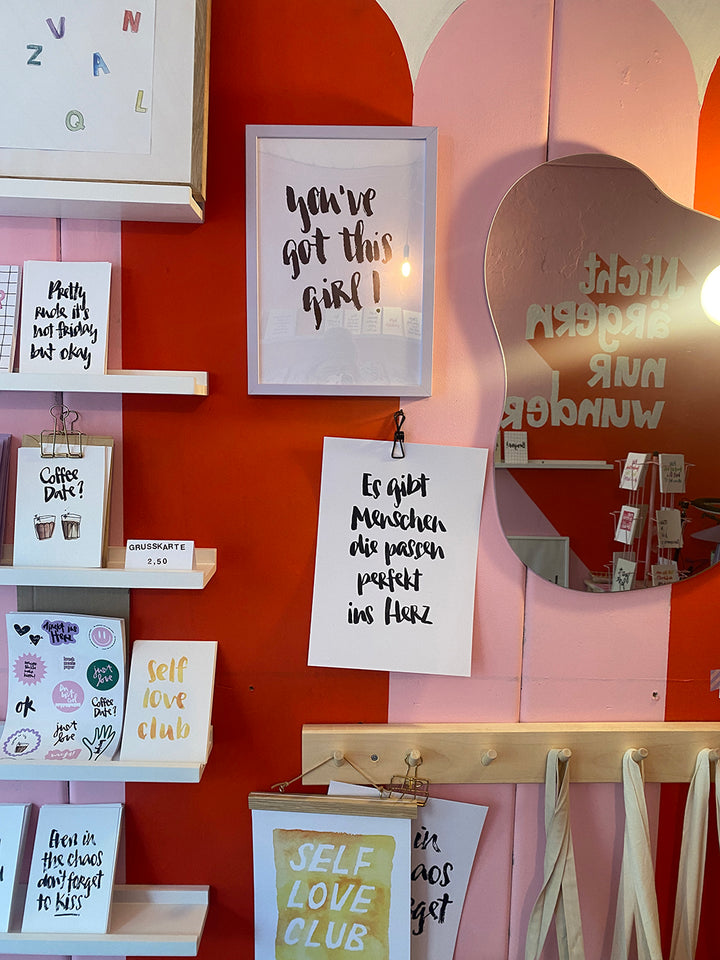 V
N
Z
A
L
Q
you've
got this
girl!
Pretty
rude it's
not friday
but okay
Nicht
ärgern
nur
wunder
Coffee
Date?
GRUSSKARTE
2,50
Es gibt
Menschen
die passen
perfekt
ins Herz
just
love
ok
Coffee
Date?
just
love
self
love
club
Even in
the chaos
don't forget
to kiss
SELF
LOVE
CLUB
in
aos
get